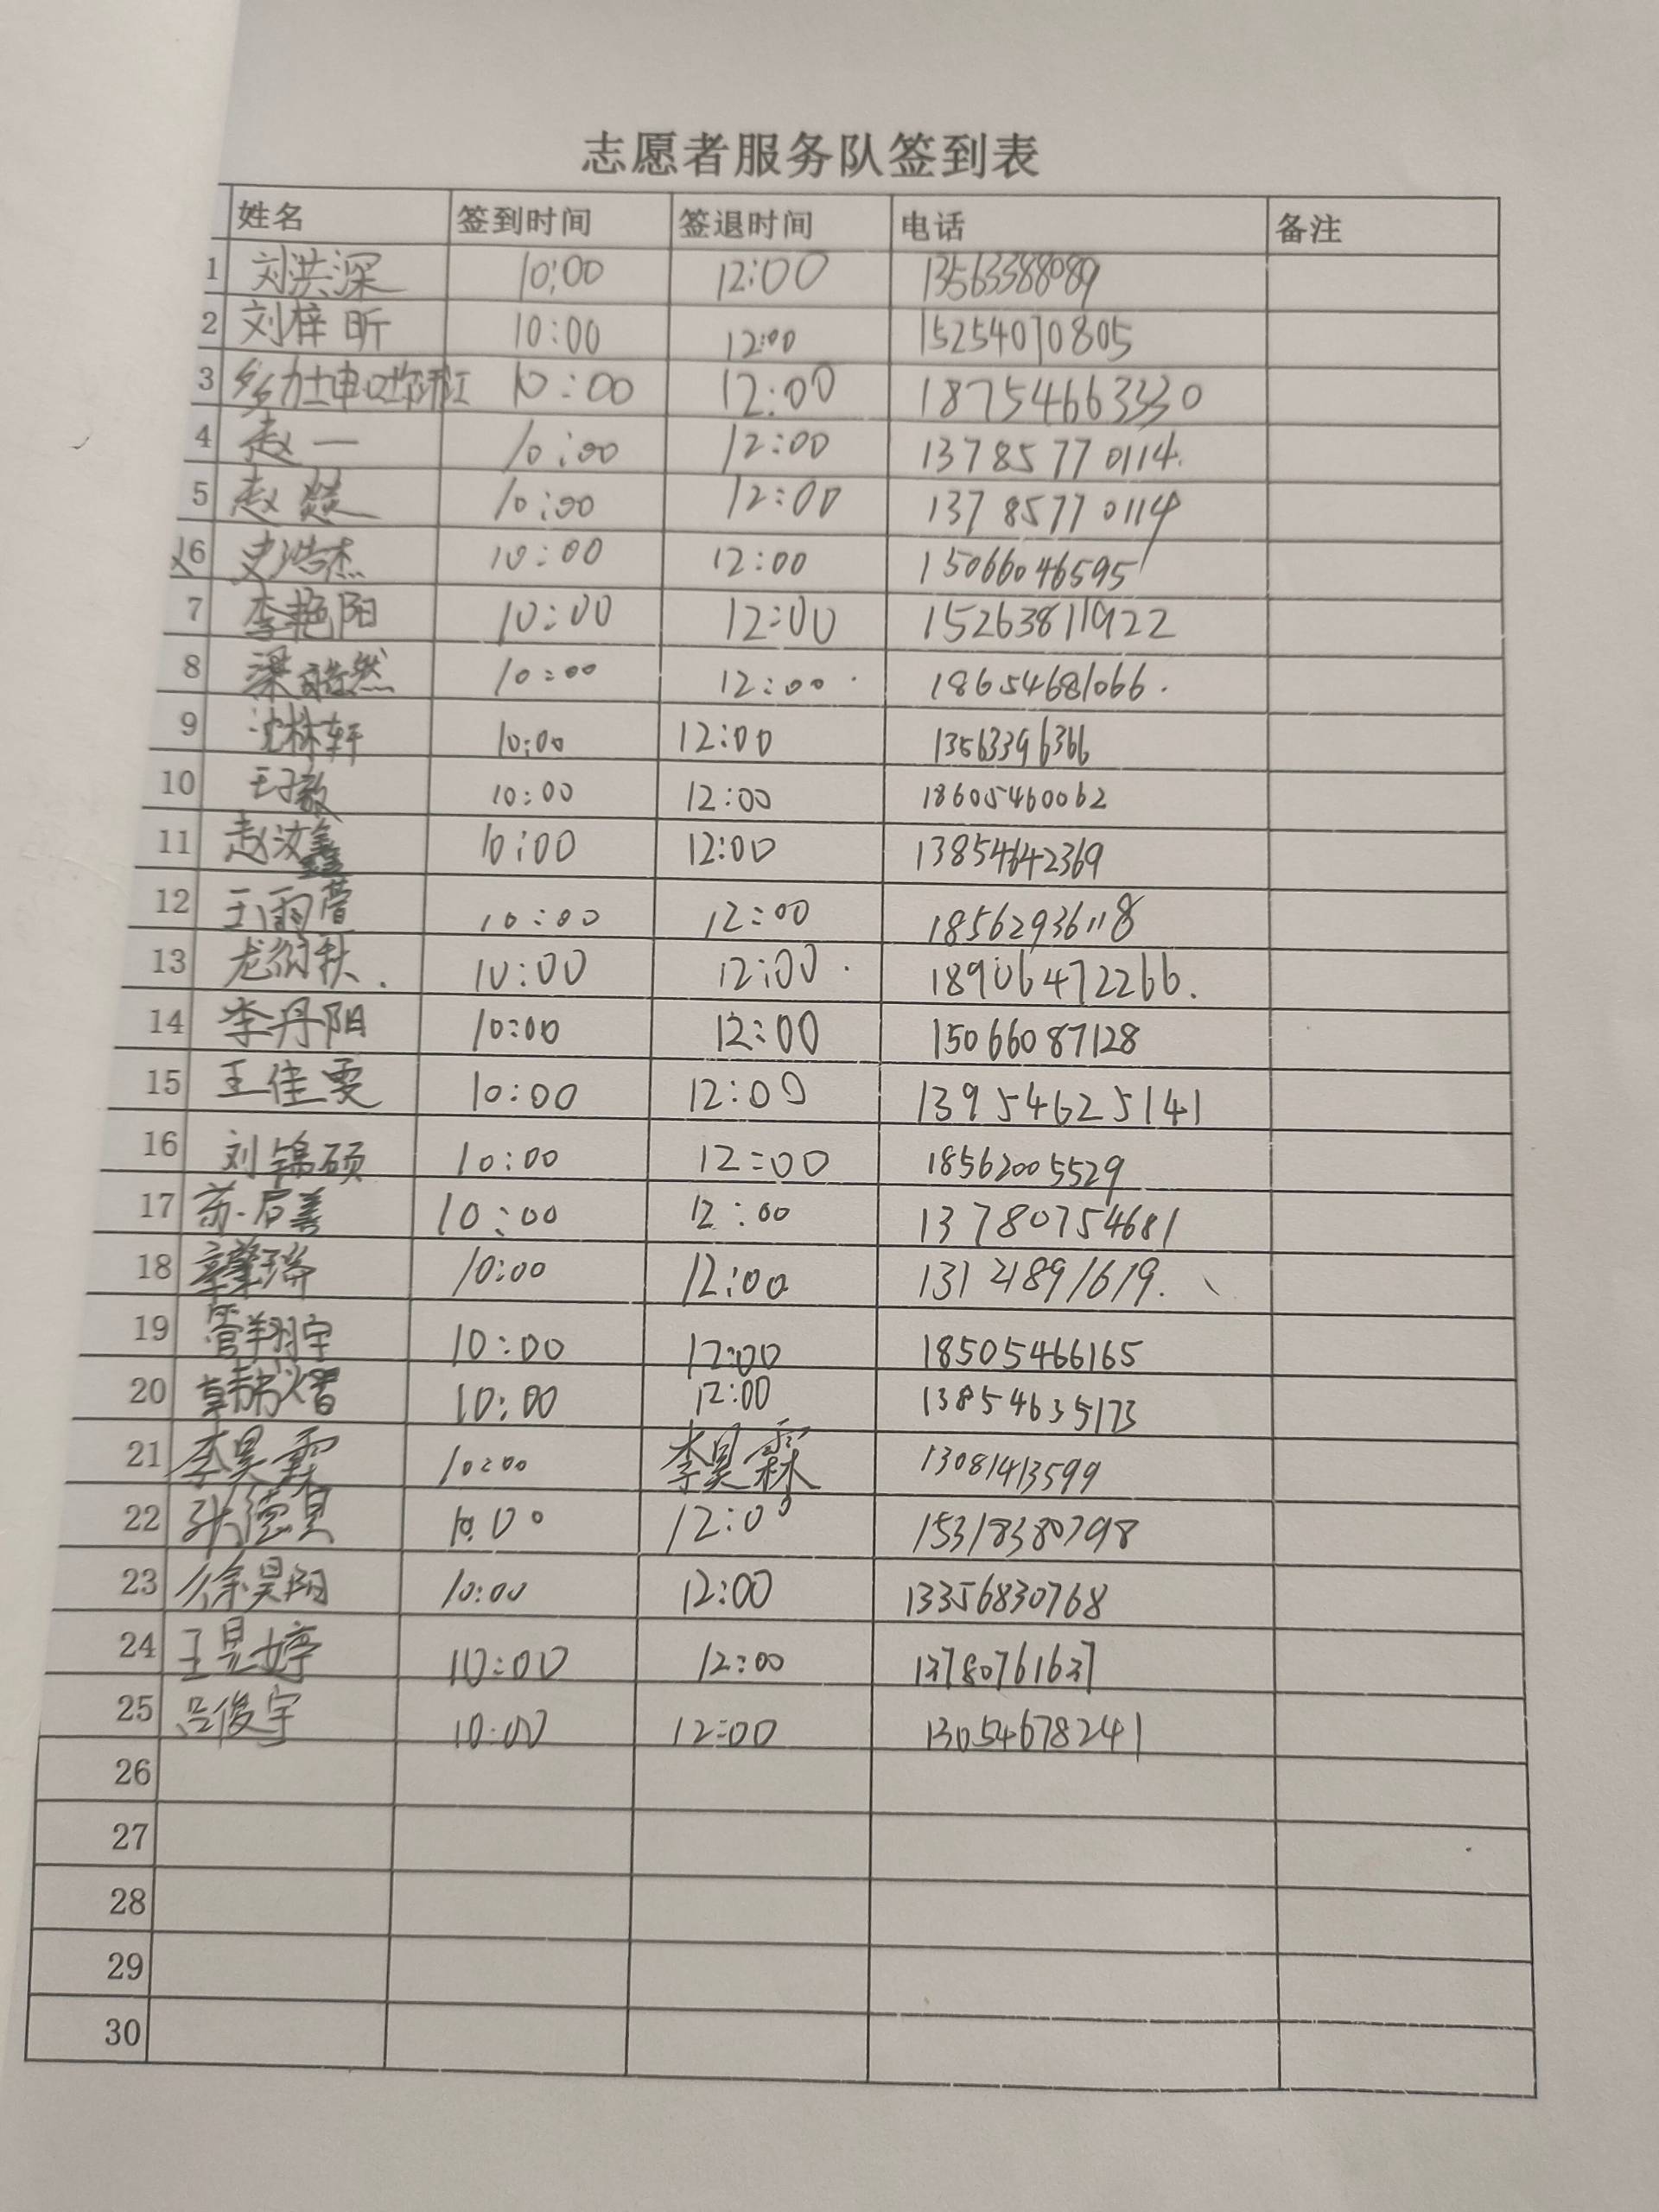 志愿者服务队签到表
姓名 签到时间 签退时间 电话 备注
1 刘洪深 10:00 12:00 13563388089
2 刘梓昕 10:00 12:00 15254070805
3 10:00 12:00 18754663330
4 赵一 10:00 12:00 13785770114.
5 赵燚 10:00 12:00 13785770114
6 史浩杰 10:00 12:00 15066046595
7 李艳阳 10:00 12:00 15263811922
8 梁皓然 10:00 12:00 18654681066.
9 沈林轩 10:00 12:00 13563396366
10 10:00 12:00 18605460062
11 赵汶鑫 10:00 12:00 13854642369
12 王雨萱 10:00 12:00 18562936118
13 10:00 12:00 18906472266.
14 李丹阳 10:00 12:00 15066087128
15 王佳雯 10:00 12:00 13954625141
16 刘锦硕 10:00 12:00 18562005529
17 10:00 12:00 13780754681
18 10:00 12:00 13121891619.
19 管翔宇 10:00 12:00 18505466165
20 10:00 12:00 13854635173
21 李昊霖 10:00 李昊霖 13081413599
22 张德昊 10:00 12:00 15318380798
23 徐昊阳 10:00 12:00 13356830768
24 王昱婷 10:00 12:00 13780761637
25 吕俊宇 10:00 12:00 13054678241
26
27
28
29
30